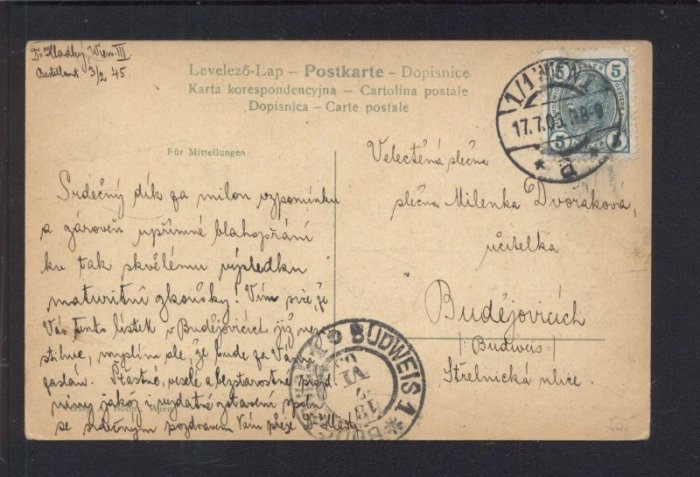 Dr Hladky, Wien III
3/2 45
Levelező-Lap – Postkarte – Dopisnice
Karta korespondencyjna – Cartolina postale
Dopisnica – Carte postale
Für Mitteilungen
Srdečný dík za milou vzpomínku
a zároveň upřímné blahopřání
ku tak skvělému výsledku
maturitní zkoušky! Vím sice, že
Vás tento lístek v Budějovicích již ne
stihne, myslím ale, že bude za Vámi
zaslán. Šťastné, veselé a bezstarostné prázd
niny jakož i vydatné zotavení
se srdečným pozdravem Vám přeje Dr Hladky
Velectěná slečna
slečna Milenka Dvoraková,
učitelka
Budějovicích
(Budweis)
Střelnická ulice.
5 5
5
1/1 WIEN 1
17.7.05
BUDWEIS 1
18